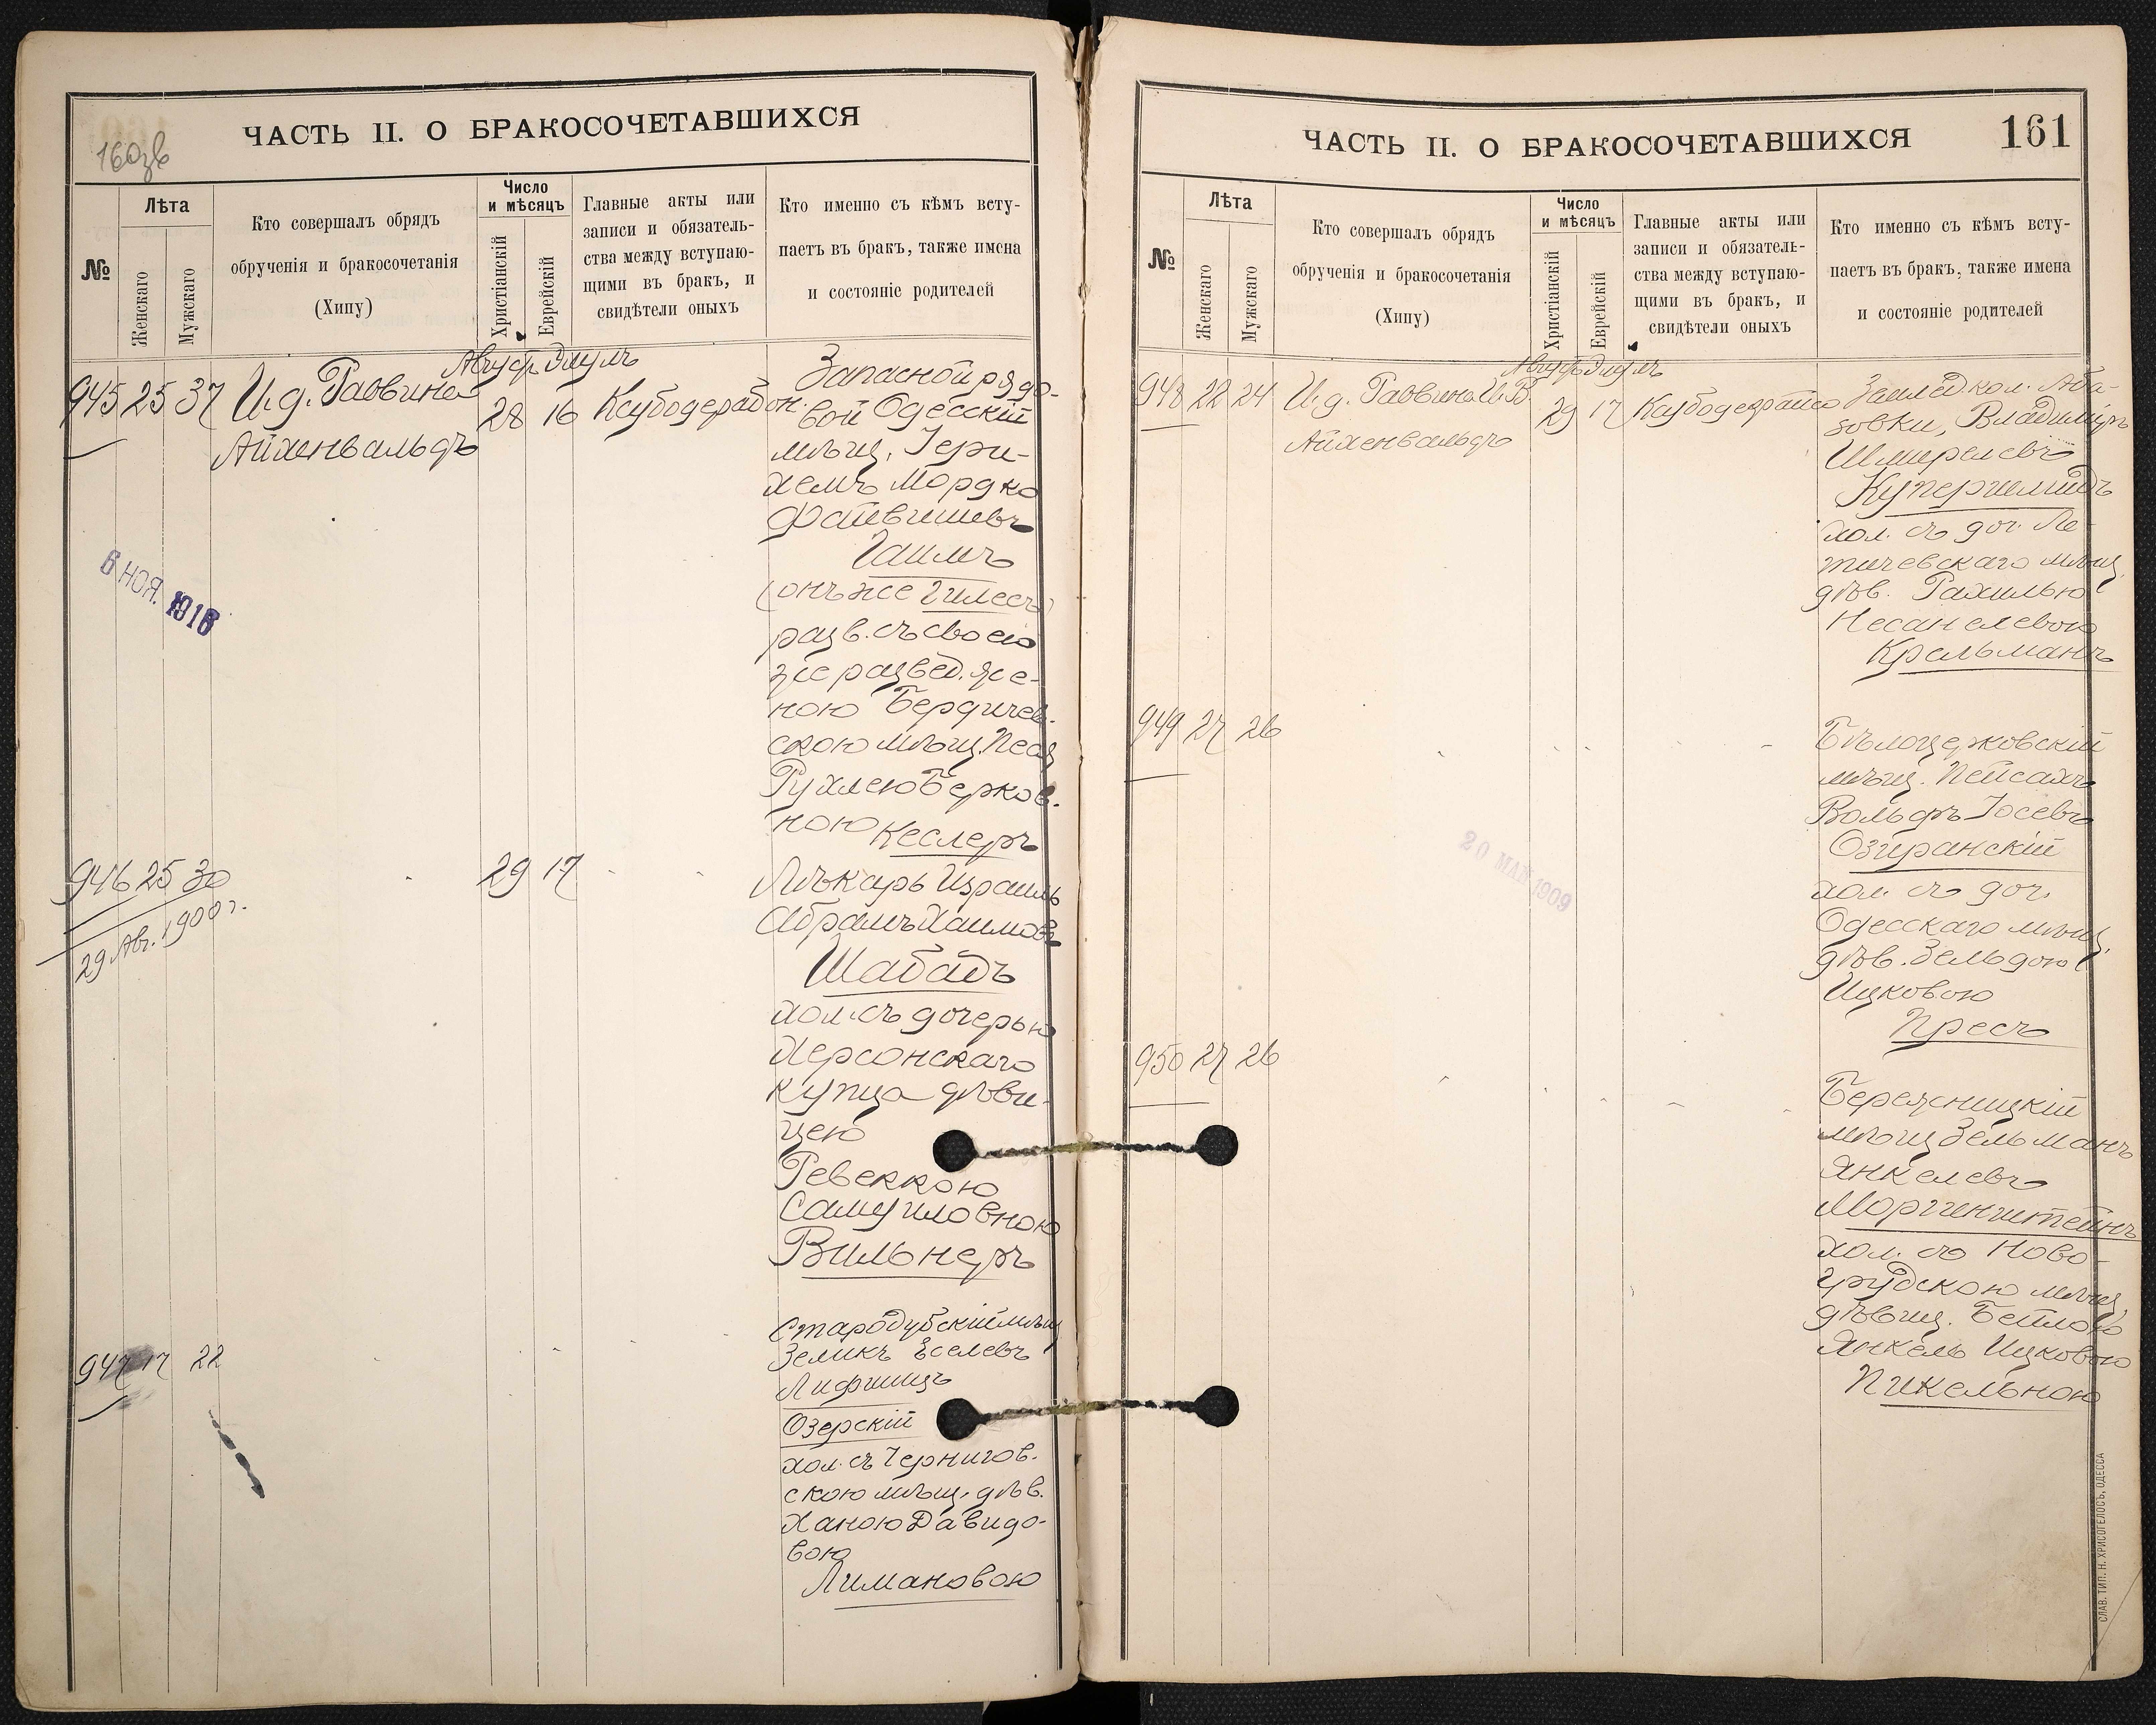 160зв
ЧАСТЬ II. О БРАКОСОЧЕТАВШИХСЯ
№
Лѣта
Женскаго
Мужскаго
Кто совершалъ обрядъ
обрученія и бракосочетанія
(Хипу)
Число
и мѣсяцъ
Христіанскій
Еврейскій
Главные акты или
записи и обязатель-
ства между вступаю-
щими въ бракъ, и
свидѣтели оныхъ
Кто именно съ кѣмъ всту-
паетъ въ бракъ, также имена
и состояніе родителей
Август Элулъ
945 25 37 И.д. Раввина
Айхенвальдъ
28 16
Запасной рядо-
вой Одесскій
мѣщ. Іери-
хемъ Мордко
Файвишевъ
Гаимъ
(онъ же Гилесъ)
разв. съ своею
же развед. же-
ною Бердичев-
скою мѣщ. Песя
Рухлею Берков-
ною Кеслеръ
6 НОЯ. 1916
946 25 30
29 Авг. 1900 г.
29 17
Лѣкарь Израиль
Абрамъ Хаимовъ
Шабадъ
хол. съ дочерью
Херсонскаго
купца дѣви-
цею
Ревеккою
Самуиловною
Вильнеръ
947 17 22
Стародубскій мѣщ
Зеликъ Еселевъ
Лифшицъ
Озерскій
хол. съ Чернигов-
скою мѣщ. дѣв.
Ханою Давидо-
вою
Лимановою
ЧАСТЬ II. О БРАКОСОЧЕТАВШИХСЯ
161
№
Лѣта
Женскаго
Мужскаго
Кто совершалъ обрядъ
обрученія и бракосочетанія
(Хипу)
Число
и мѣсяцъ
Христіанскій
Еврейскій
Главные акты или
записи и обязатель-
ства между вступаю-
щими въ бракъ, и
свидѣтели оныхъ
Кто именно съ кѣмъ всту-
паетъ въ бракъ, также имена
и состояніе родителей
Август Элулъ
948 22 24 И.д. Раввина И.В.
Айхенвальдъ
29 17
Землед. кол. Аба-
зовки, Владиміръ
Шмерелевъ
Купершмидъ
хол. съ доч. Ле-
тичевскаго мѣщ.
дѣв. Рахилью
Несанелевою
Крельманъ
949 27 26
Бѣлоцерковскій
мѣщ. Пейсахъ
Вольфъ Іосевъ
Озиранскій
хол. съ доч.
Одесскаго мѣщ.
дѣв. Зельдою
Ицковою
Пресъ
20 МАЯ 1909
950 27 26
Бережницкій
мѣщ Зельманъ
Янкелевъ
Моргенштейнъ
хол. съ Ново-
грудскою мѣщ.
дѣвиц. Бейлою
Янкель Ицковою
Пикельною
СЛАВ. ТИП. Н. ХРИСОГЕЛОСЪ, ОДЕССА